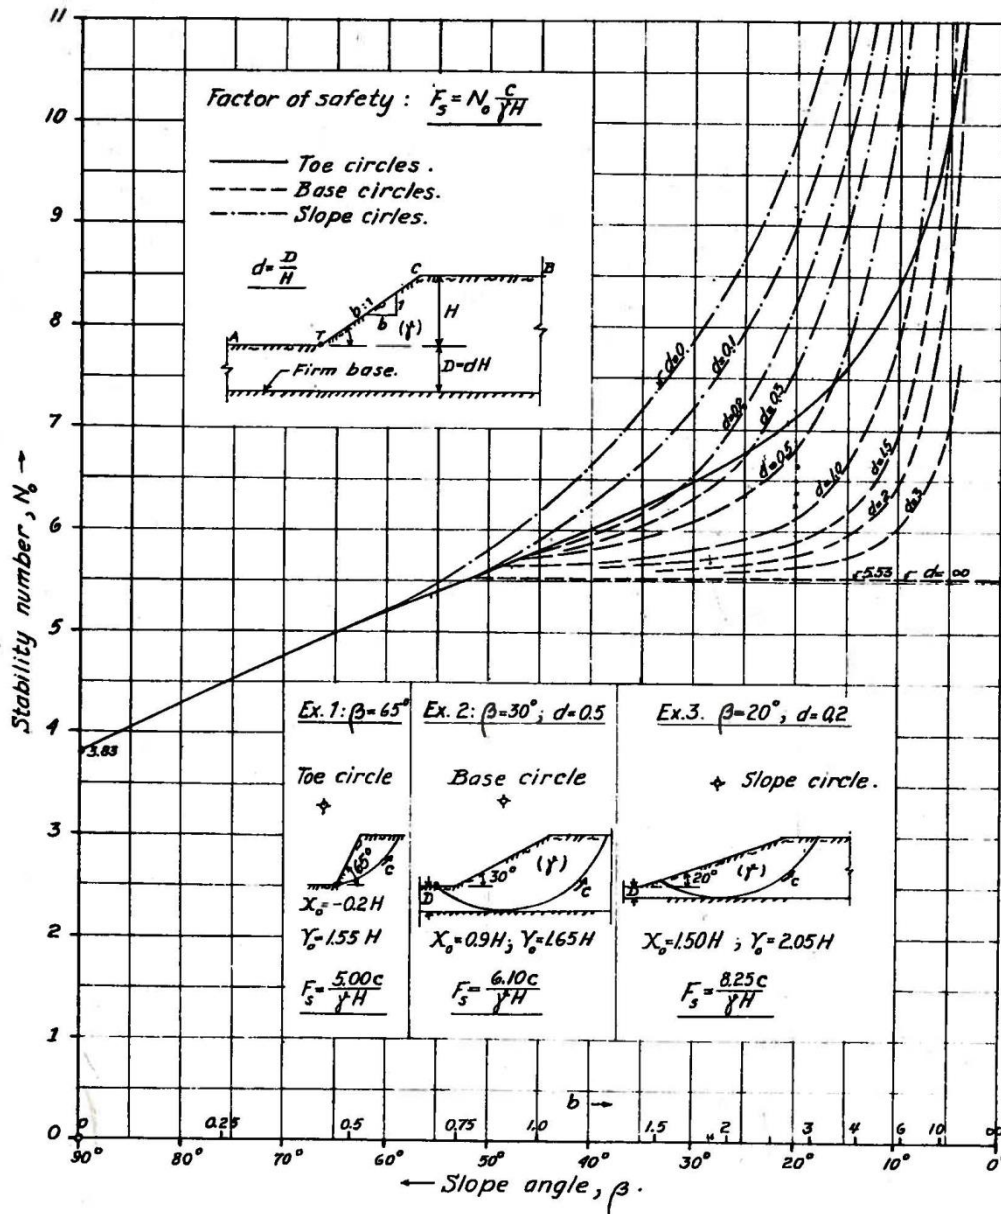 11
10
9
8
7
6
5
4
3
2
1
0
Stability number, N₀ →
Factor of safety : F_s = N₀ c/γH
Toe circles.
Base circles.
Slope cirles.
d = D/H
A
T
C
B
b:1
1
b
(γ)
H
D=dH
Firm base.
d=0
d=0.1
d=0.2
d=0.3
d=0.5
d=1.0
d=1.5
d=2
d=3
5.53
d=∞
3.83
Ex. 1: β=65°
Toe circle
65°
C
X₀=-0.2H
Y₀=1.55 H
F_s = 5.00c/γH
Ex. 2: β=30°; d=0.5
Base circle
(γ)
30°
D
C
X₀=0.9H; Y₀=1.65H
F_s = 6.10c/γH
Ex.3. β=20°, d=0.2
Slope circle.
20°
(γ)
D
C
X₀=1.50H ; Y₀=2.05H
F_s = 8.25c/γH
b →
0 0.25 0.5 0.75 1.0 1.5 2 3 4 6 10 ∞
90° 80° 70° 60° 50° 40° 30° 20° 10° 0°
← Slope angle, β.